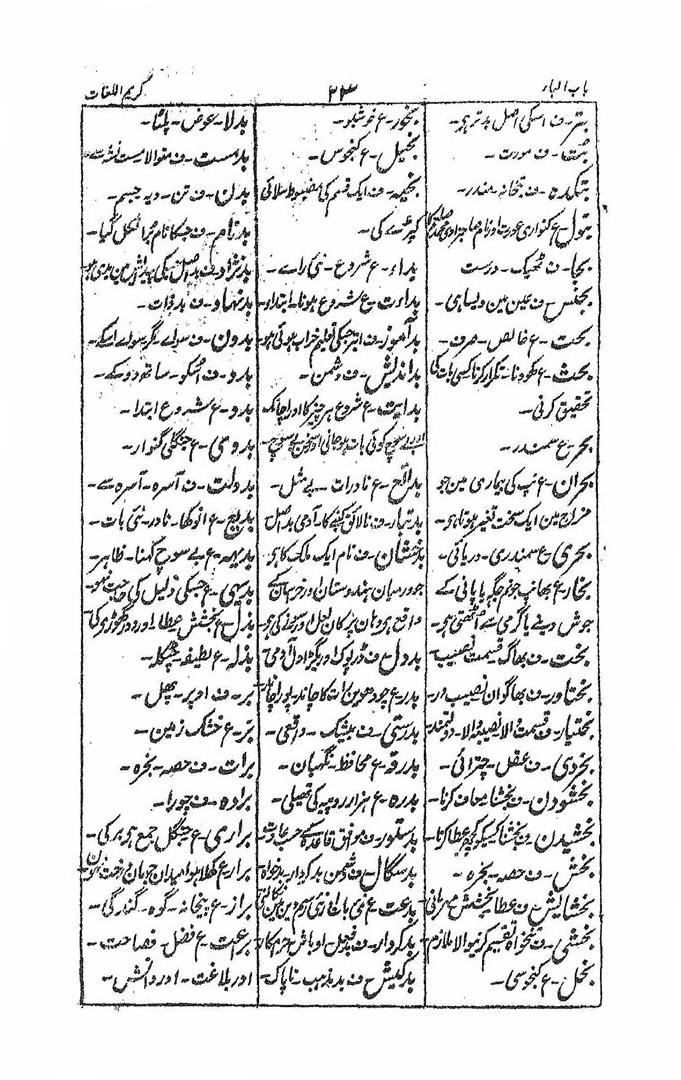 باب الباء
۲۳
کریم اللغات
بتر۔ ف اسکی اصل بد تر ہی۔
بت۔ ف مورت۔
بتکدہ۔ ف بتخانہ۔ مندر۔
بتول۔ ع کنواری عورت اور نام صاحبزادی
بجا۔ ف ٹھیک۔ درست
بجنس۔ ف عین مین ویسا ہی۔
بحت۔ ع خالص۔ صرف۔
بحث۔ ع کھودنا۔ تکرار کرنا کسی بات کی
تحقیق کرنی۔
بحر۔ ع سمندر۔
بحران۔ ع تپ کی بیماری مین جو
مزاج مین ایک سخت تغیر ہوتا ہی۔
بحری۔ ع سمندری۔ دریائی۔
بخار۔ ع بھانپ جو نم جگہ یا پانی کے
جوش دینے یا گرمی سے اٹھتی ہو۔
بخت۔ ف بھاگ۔ قسمت۔ نصیب۔
بختاور۔ ف بھاگوان نصیب ور۔
بختیار۔ ف قسمت والا نصیبہ والا۔ دولتمند
بخردی۔ ف عقل۔ چترائی۔
بخشودن۔ ف بخشنا۔ معاف کرنا۔
بخشیدن۔ ف بخشنا کسیکو کچھ عطا کرنا۔
بخش۔ ف حصہ۔ بخرہ۔
بخشایش۔ ف عطا بخشش مہربانی
بخشی۔ ف تنخواہ تقسیم کرنیوالا ملازم
بخل۔ ع کنجوسی۔
بخور۔ ع خوشبو۔
بخیل۔ ع کنجوس۔
بخیہ۔ ف ایک قسم کی مضبوط سلائی
کپڑے کی۔
بداء۔ ع شروع۔ نئی راے۔
بداءت۔ ع شروع ہونا۔ ابتداء۔
بدآموز۔ ف ابتر جسکی تعلیم خراب ہوئی ہو
بداندیش۔ ف دشمن۔
بداہت۔ ع شروع ہر چیز کا اور اچانک
بدائع۔ ع نادرات۔ بے مثل۔
بدتبار۔ ف نالائق کنبے کا۔ آدمی بد اصل
بدخشان۔ ف نام ایک ملک کا ہو
جو درمیان ہندوستان اور خراسان کے
واقع ہو وہان پر کان لعل اور سونے کی ہو۔
بددل۔ ف ڈرپوک اور بگڑا دل آدمی
بدر۔ ع چودھوین رات کا چاند۔ پورا چاند
بدرستی۔ ف بیشک۔ واقعی۔
بدرقہ۔ ع محافظ۔ نگہبان۔
بدرہ۔ ع ہزار روپیہ کی تھیلی۔
بدستور۔ ف موافق قاعدہ کے حسب عادت
بدسگال۔ ف دشمن بد کردار۔ بدخواہ
بدعت۔ ع نئی بات نئی رسم دین مین نکالنی
بدکردار۔ ف بدفعل اوباش حرامکار
بدکیش۔ ف بد مذہب۔ ناپاک۔
بدلا۔ عوض۔ پلٹا۔
بدمست۔ ف متوالا مست نشہ سے
بدن۔ ف تن۔ دیہ جسم۔
بدنام۔ ف جسکا نام برا نکل گیا۔
بدنژاد۔ ف بد اصل جسکی پیدایش مین بدی ہو
بدنہاد۔ ف بدذات۔
بدون۔ ف سواے۔ مگر سواے اسکے۔
بدو۔ ف اسکو۔ ساتھ دو کے۔
بدو۔ ع شروع ابتدا۔
بدوی۔ ع جنگلی گنوار۔
بدولت۔ ف آسرہ۔ آسرہ سے۔
بدیع۔ ع انوکھا۔ نادر۔ نئی بات۔
بدیہہ۔ ع بے سوچ کہنا۔ ظاہر۔
بدیہی۔ ع جسکی دلیل کی حاجت نہو۔
بذل۔ ع بخشش عطا اور دوڑ گھوڑی کی
بذلہ۔ ع لطیفہ۔ چٹکلہ۔
بر۔ ف اوپر۔ پھل۔
بر۔ ع خشک زمین۔
برات۔ ف حصہ۔ بخرہ۔
برادہ۔ ف چورا۔
براری۔ ع جنگل جمع ہو بر کی۔
براز۔ ع کھلا ہوا میدان جہان درخت نہون
براز۔ ع پیخانہ۔ گوہ۔ گندگی۔
براعت۔ ع فضل۔ فصاحت۔
اور بلاغت۔ اور دانش۔